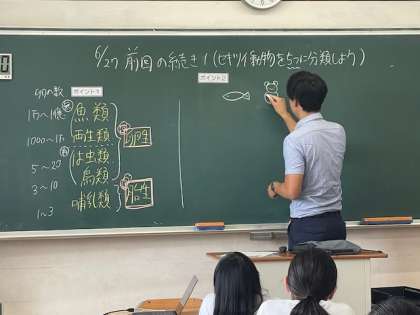 6/27 前回の続き!(セキツイ動物を5つに分類しよう)
卵の数
ポイント1
ポイント2
1万〜1億 魚類
1000〜1万 両生類
卵生
5〜20 は虫類
鳥類
3〜10
胎生
1〜3 哺乳類